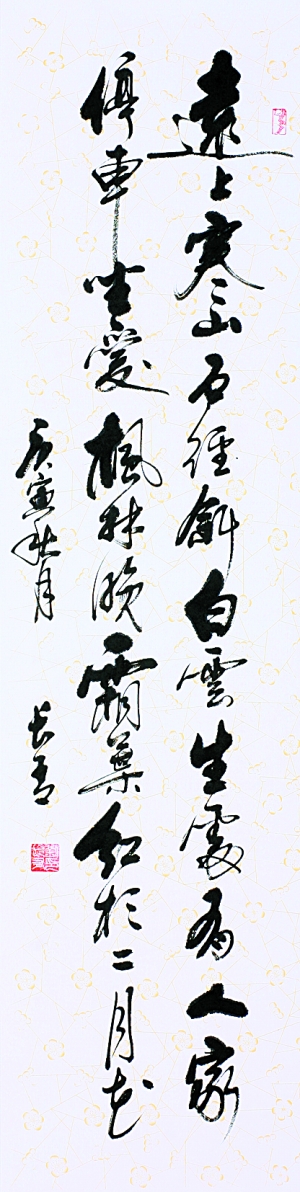 遠上寒山石徑斜白雲生處有人家
停車坐愛楓林晚霜葉紅於二月花
庚寅秋月